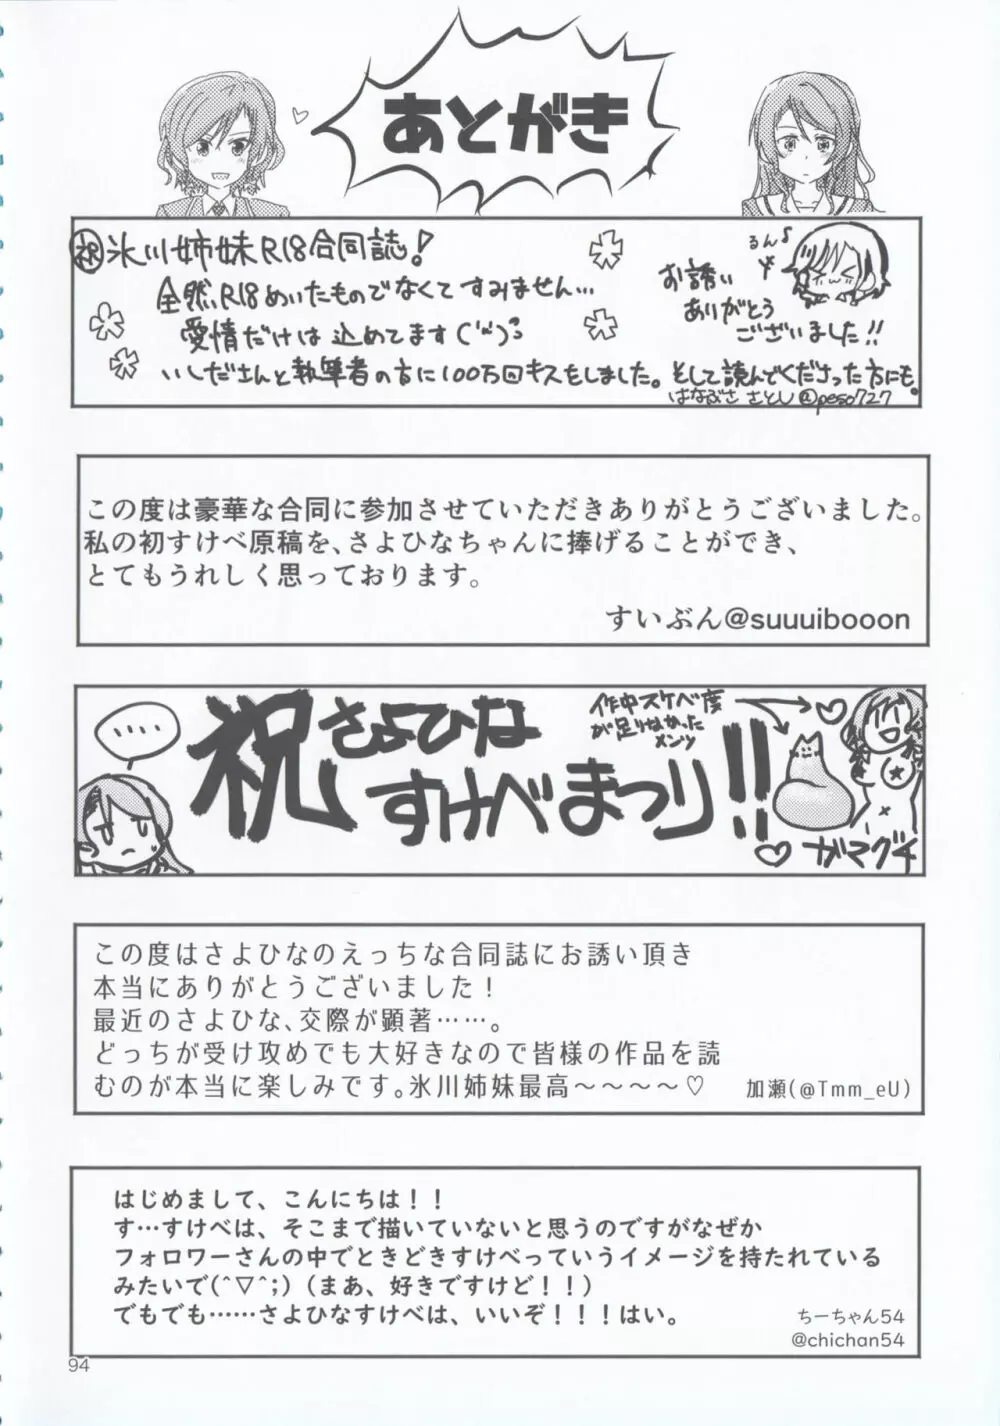 あとがき
祝 氷川姉妹R18合同誌!
全然、R18めいたものでなくてすみません…
愛情だけは込めてます('ω')
いしださんと執筆者の方に100万回キスをしました。そして読んでくださった方にも。
るん♪
お誘い
ありがとう
ございました!!
はなぶさ さとし @peso727
この度は豪華な合同に参加させていただきありがとうございました。
私の初すけべ原稿を、さよひなちゃんに捧げることができ、
とてもうれしく思っております。
すいぶん@suuuibooon
‥‥
祝 さよひな
すけべまつり!!
作中スケベ度
が足りなかった
メンツ
♡ガマグチ
この度はさよひなのえっちな合同誌にお誘い頂き
本当にありがとうございました!
最近のさよひな、交際が顕著……。
どっちが受け攻めでも大好きなので皆様の作品を読
むのが本当に楽しみです。氷川姉妹最高〜〜〜〜♡
加瀬(@Tmm_eU)
はじめまして、こんにちは!!
す…すけべは、そこまで描いていないと思うのですがなぜか
フォロワーさんの中でときどきすけべっていうイメージを持たれている
みたいで(^▽^;)(まあ、好きですけど!!)
でもでも……さよひなすけべは、いいぞ!!!はい。
ちーちゃん54
@chichan54
94